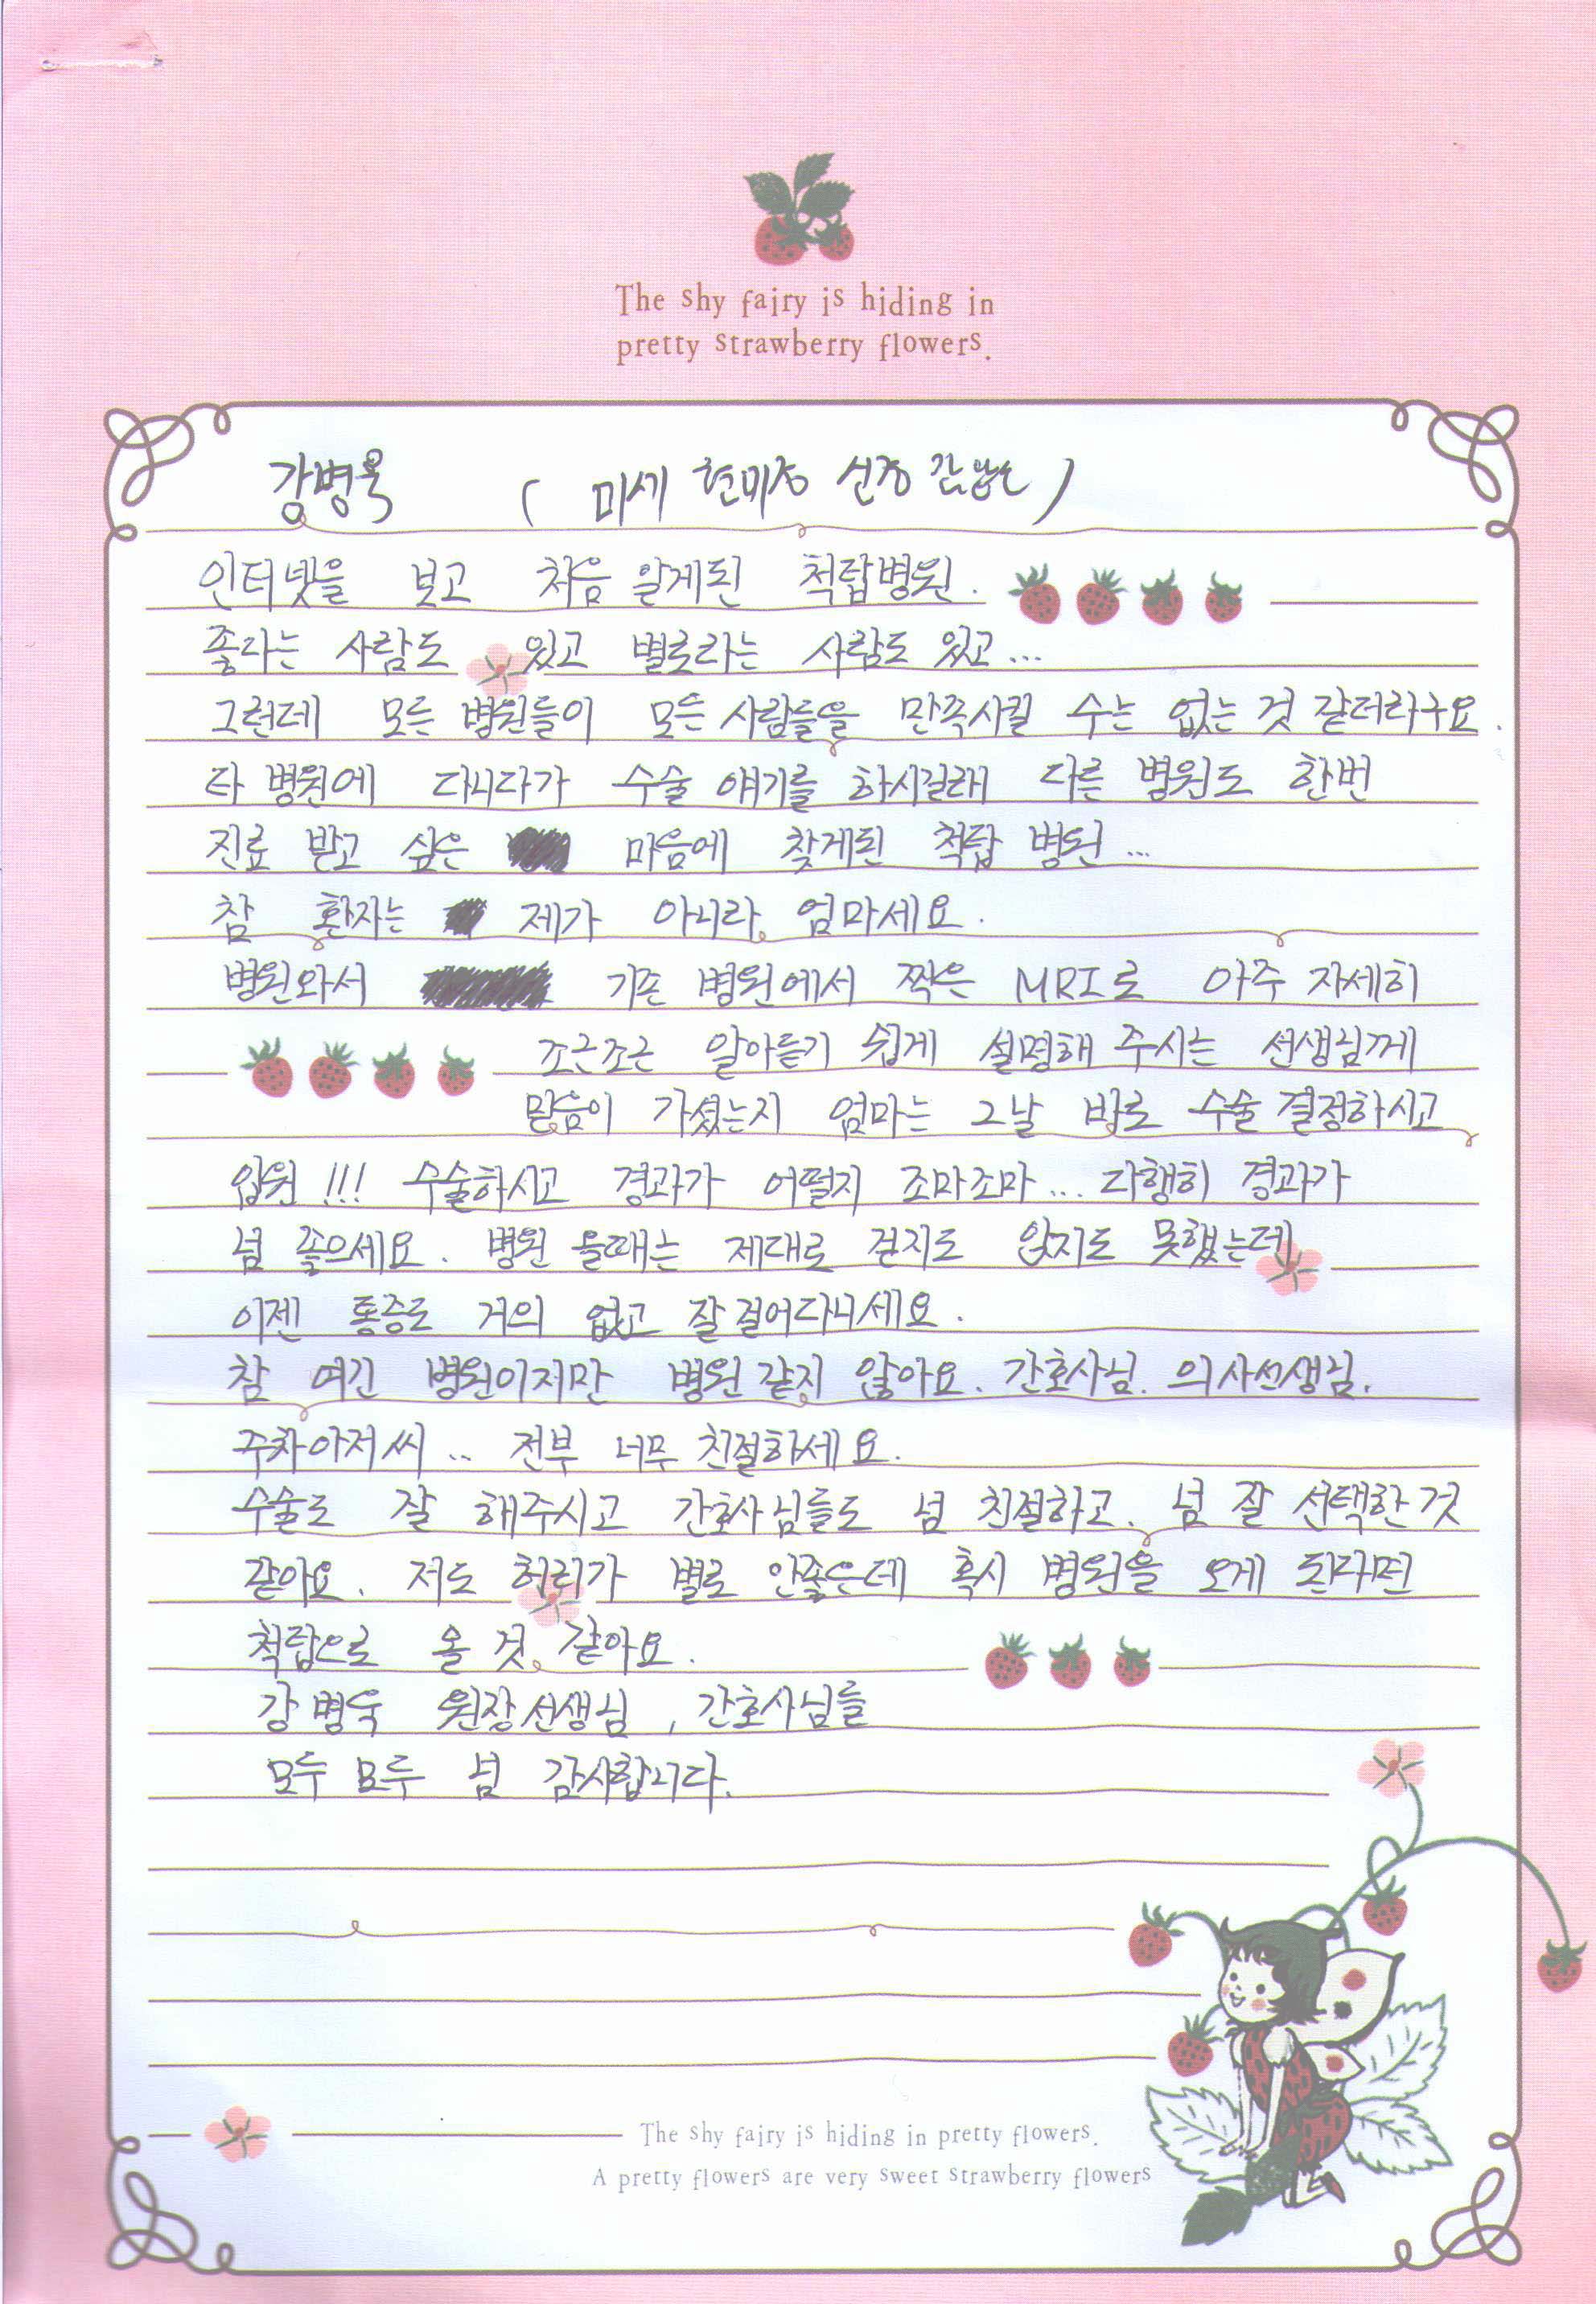 The shy fairy is hiding in
pretty strawberry flowers.
강병욱 ( 미세 현미경 신경 감압술 )
인터넷을 보고 처음 알게된 척탑병원.
좋다는 사람도 있고 별로라는 사람도 있고...
그런데 모든 병원들이 모든 사람들을 만족시킬 수는 없는 것 같더라구요.
타 병원에 다니다가 수술 얘기를 하시길래 다른 병원도 한번
진료 받고 싶은 마음에 찾게된 척탑 병원...
참 환자는 제가 아니라 엄마세요.
병원와서 기존 병원에서 찍은 MRI로 아주 자세히
조근조근 알아듣기 쉽게 설명해 주시는 선생님께
믿음이 가셨는지 엄마는 그날 바로 수술 결정하시고
입원 !!! 수술하시고 경과가 어떨지 조마조마... 다행히 경과가
넘 좋으세요. 병원 올때는 제대로 걷지도 앉지도 못했는데
이젠 통증도 거의 없고 잘 걸어다니세요.
참 여긴 병원이지만 병원 같지 않아요. 간호사님. 의사선생님.
주차아저씨.. 전부 너무 친절하세요.
수술도 잘 해주시고 간호사님들도 넘 친절하고. 넘 잘 선택한 것
같아요. 저도 허리가 별로 안좋은데 혹시 병원을 오게 된다면
척탑으로 올 것 같아요.
강병욱 원장선생님, 간호사님들
모두 모두 넘 감사합니다.
The shy fairy is hiding in pretty flowers.
A pretty flowers are very sweet strawberry flowers